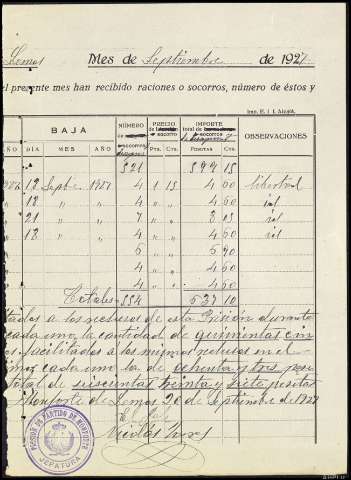 Lemos Mes de Septiembre de 1927
el presente mes han recibido raciones o socorros, número de éstos y
Imp. E. i I. Alcalá.
BAJA NÚMERO PRECIO IMPORTE OBSERVACIONES
AÑO DIA MES AÑO socorros socorro Pts. Cts. total de PESETAS Cts.
521 599 15
12 Septbre 1927 4 1 15 4 60 libertad
12 " " 4 " " 4 60 id
21 " " 7 " " 8 05 id
18 " " 4 " " 4 60 id
6 " " 6 90
4 " " 4 60
4 " " 4 60
Totales 554 637 10
a los reclusos de esta Prisión durante
cada uno la cantidad de quinientas cin
facilitados a los mismos reclusos en el
cada uno la de ochenta y tres pese
total de seiscientas treinta y siete pesetas
Monforte de Lemos 30 de Septiembre de 1927
El Jefe
Nicolás
PRISION DE PARTIDO DE MONFORTE
JEFATURA